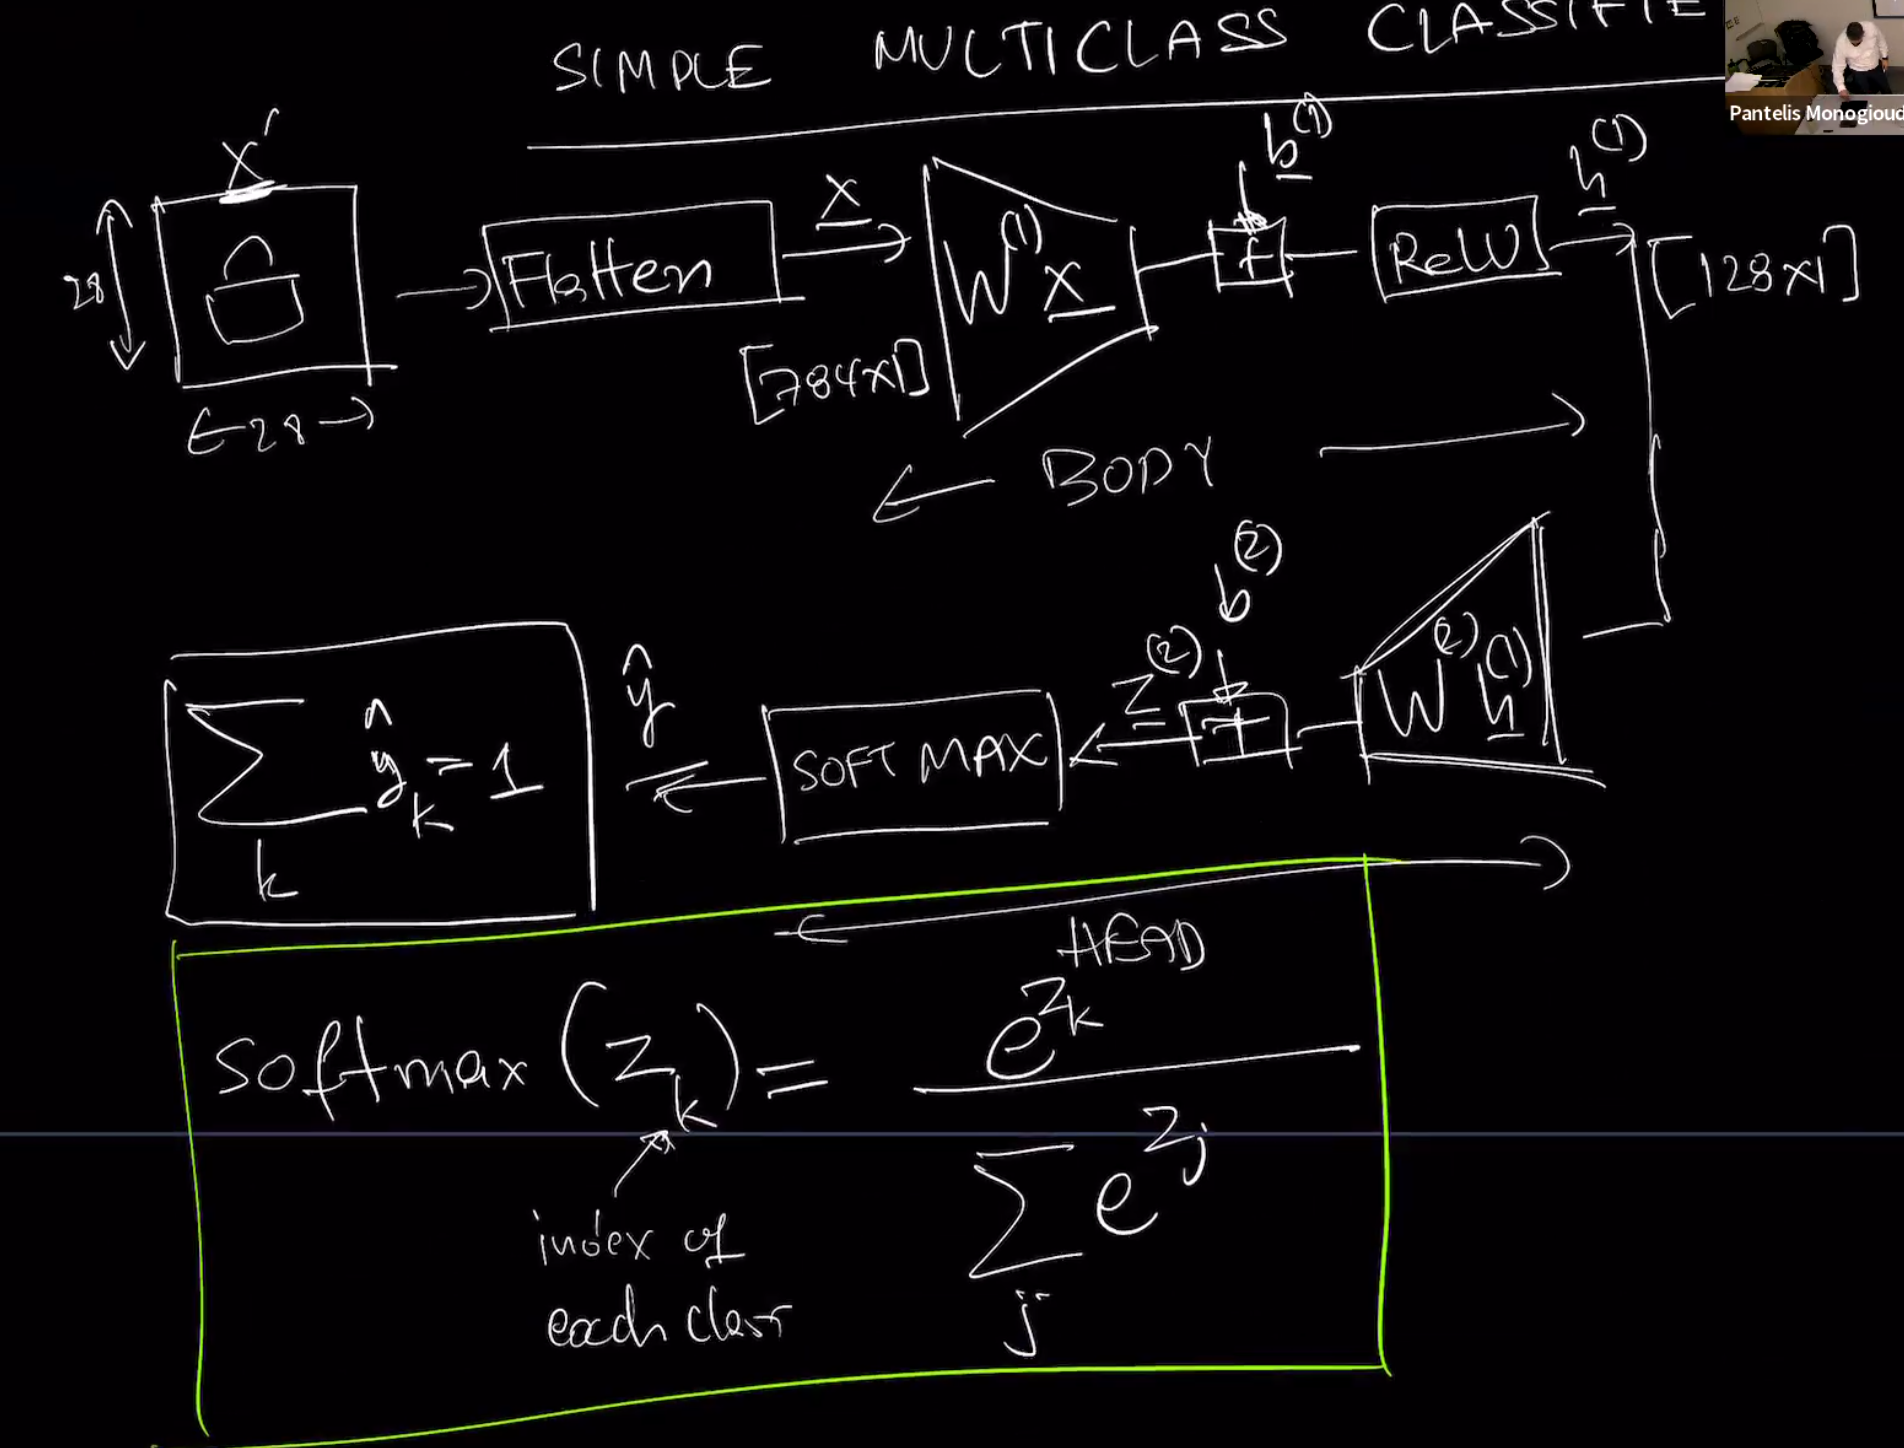 SIMPLE MULTICLASS CLASSIFIE
Pantelis Monogioud
X'
28
28
Flatten
x
[784x1]
W(1) x
b(1)
+
ReLU
h(1)
[128x1]
BODY
W(2) h(1)
b(2)
+
z(2)
SOFTMAX
ŷ
∑ ŷk = 1
k
HEAD
softmax (zk) = e^zk / ∑ e^zj
j
index of
each class